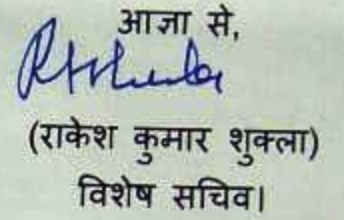 आज्ञा से,
(राकेश कुमार शुक्ला)
विशेष सचिव।